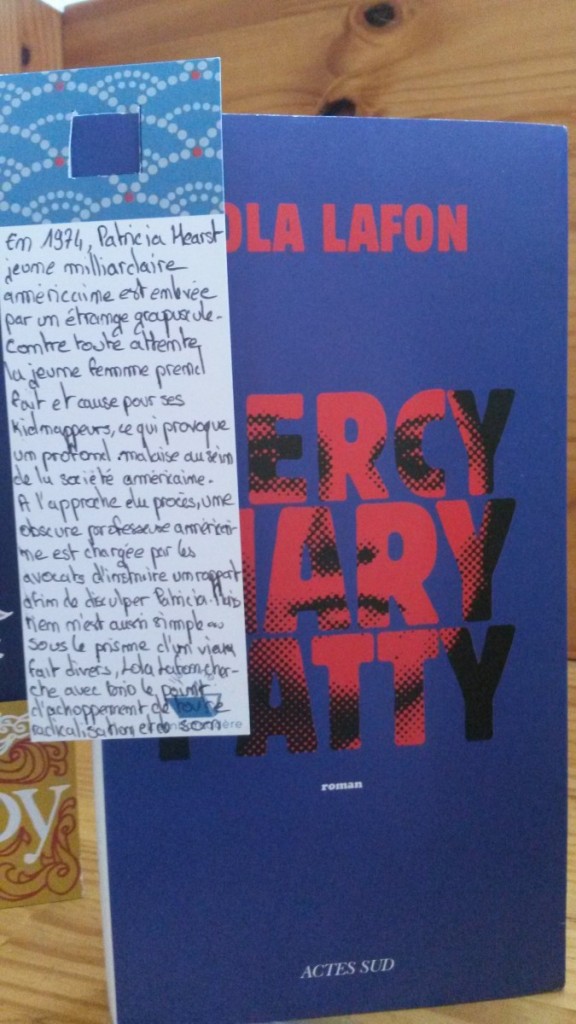 En 1974, Patricia Hearst
jeune milliardaire
américaine est enlevée
par un étrange groupuscule.
Contre toute attente,
la jeune femme prend
fait et cause pour ses
kidnappeurs, ce qui provoque
un profond malaise au sein
de la société américaine.
A l'approche du procès, une
obscure professeure américai-
ne est chargée par les
avocats d'instruire un rapport
afin de disculper Patricia. Mais
rien n'est aussi simple
sous le prisme d'un vieux
fait divers, Lola Lafon cher-
che avec brio le point
d'achoppement de toute
radicalisation
OLA LAFON
ERCY
MARY
PATTY
roman
ACTES SUD
oy
ère